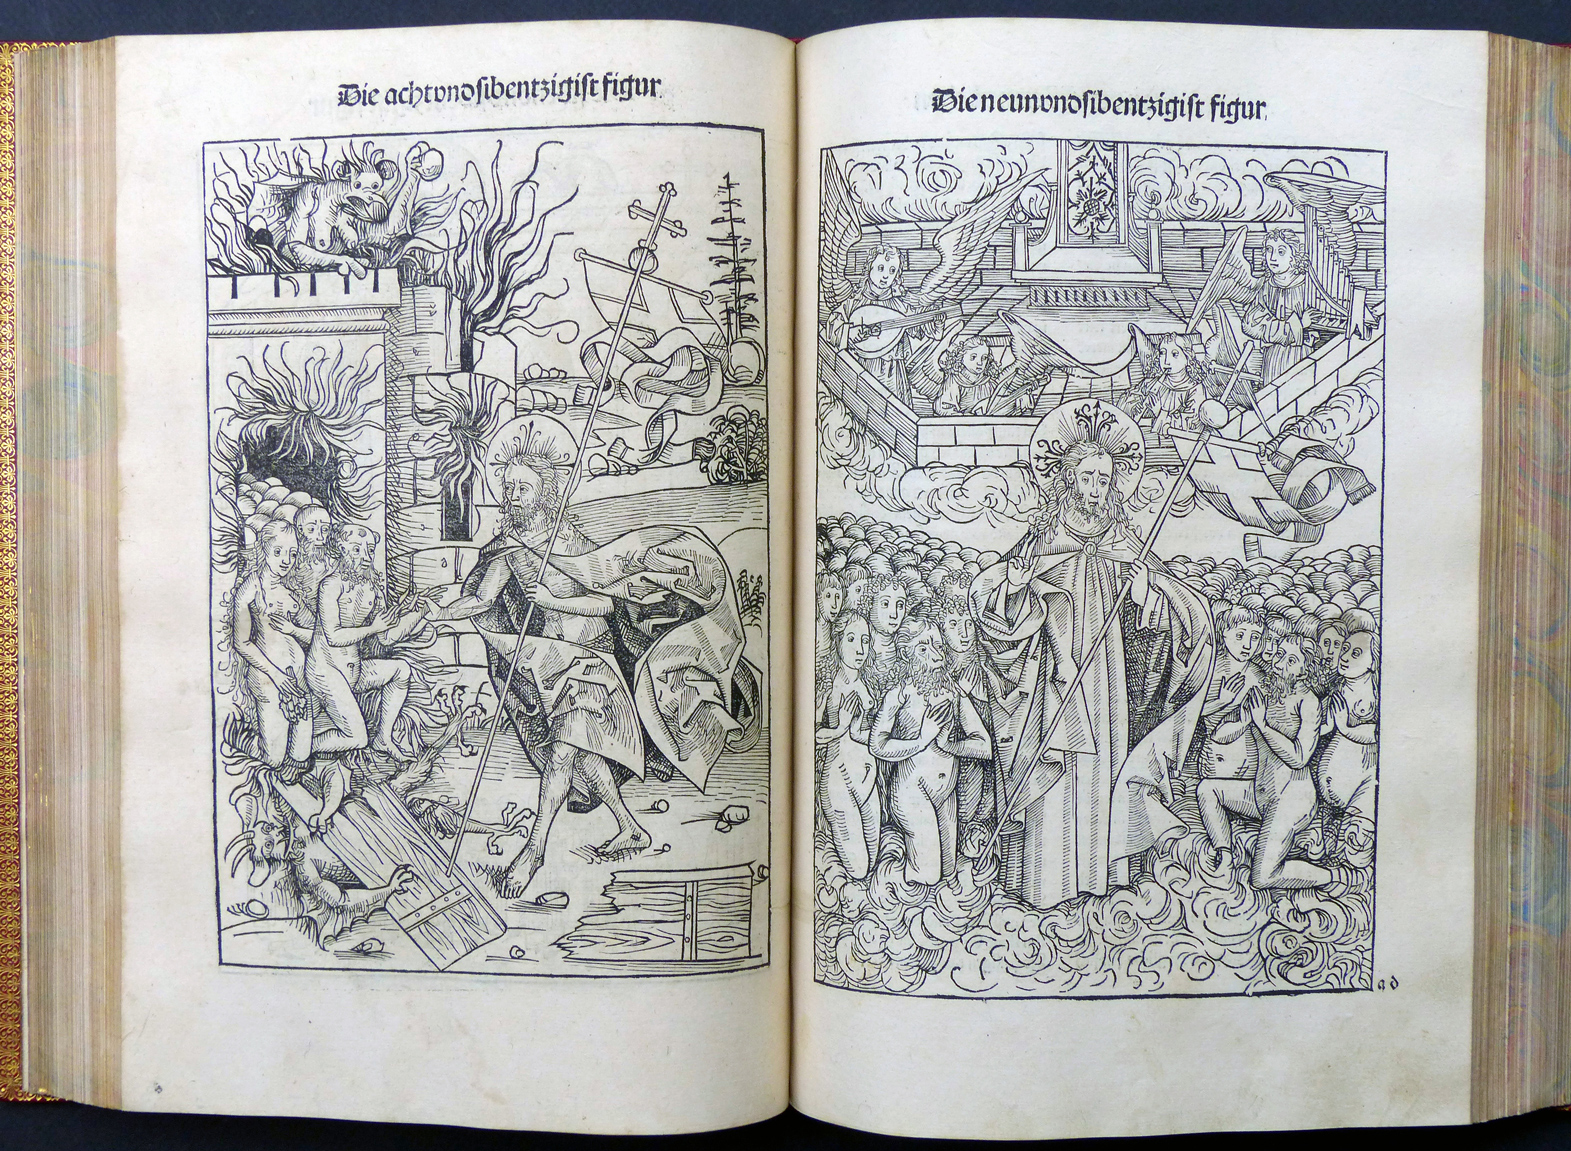 Die achtvndsibentzigist figur
Die neunvndsibentzigist figur